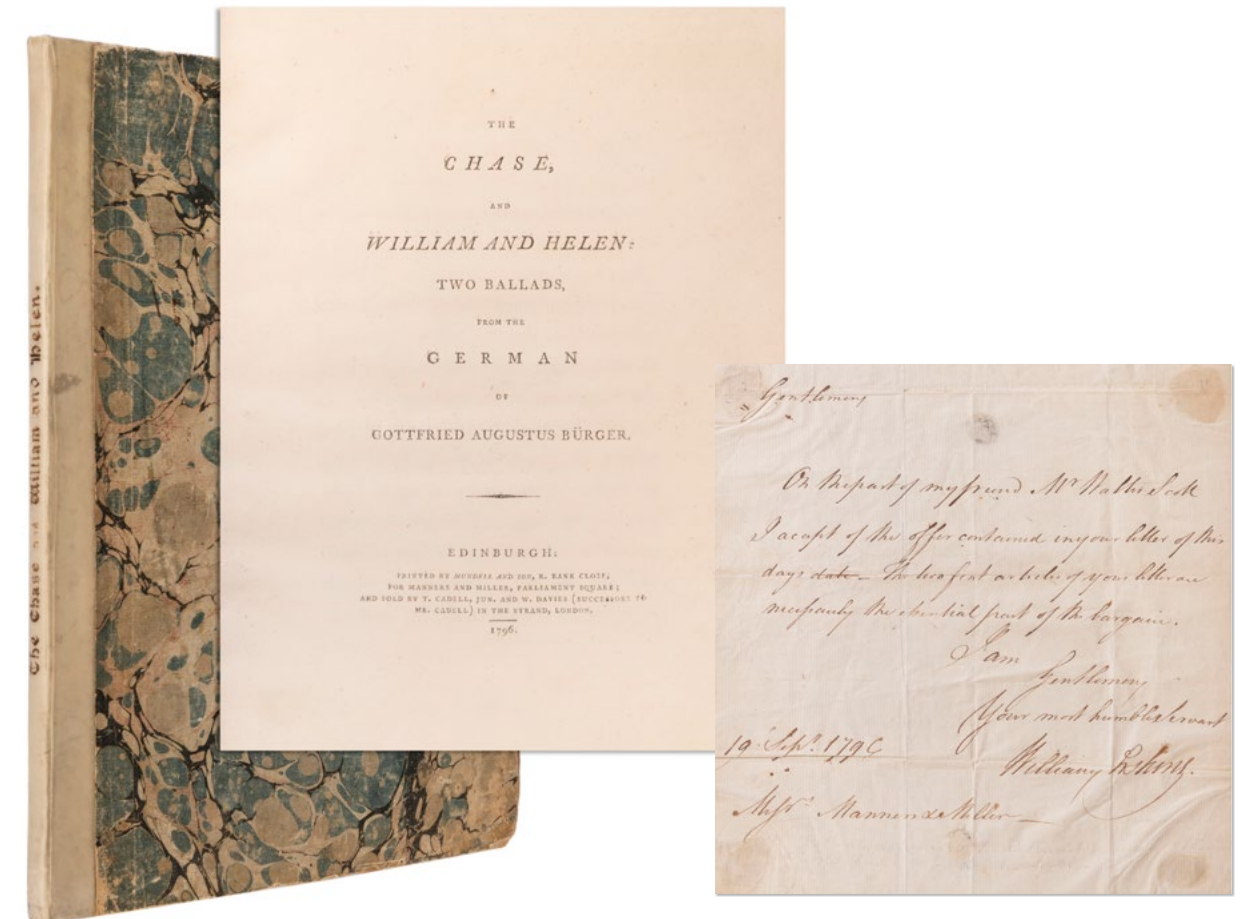 The Chase and William and Helen.
THE
CHASE,
AND
WILLIAM AND HELEN:
TWO BALLADS,
FROM THE
GERMAN
OF
GOTTFRIED AUGUSTUS BÜRGER.
EDINBURGH:
PRINTED BY MUNDELL AND SON, R. BANK CLOSE,
FOR MANNERS AND MILLER, PARLIAMENT SQUARE;
AND SOLD BY T. CADELL, JUN. AND W. DAVIES (SUCCESSORS TO
MR. CADELL) IN THE STRAND, LONDON.
1796.
Gentlemen
On the part of my friend Mr Walter Scott
I accept of the offer contained in your letter of this
days date - The two first articles of your letter are
necessarily the essential part of the bargain.
I am
Gentlemen
Your most humble Servant
19 Sepr. 1796
William Erskine.
Messrs Manners & Miller